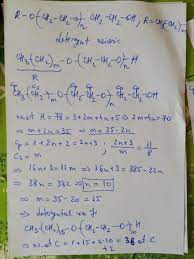 R-O(CH₂-CH₂-O)ₙCH₂-CH₂-OH, R=CH₃(CH₂)ₘ
detergent neionic
CH₃(CH₂)ₘ-O-(CH₂-CH₂-O)ₙH
R
CH₃(CH₂)ₘ-O-(CH₂-CH₂-O)ₙ-CH₂-CH₂-OH
H = 78 = 3+2m+4n+5 ⇒ 2m+4n = 70
⇒ m+2n=35 ⇒ m=35-2n
Cp = 1+2n+2 = 2n+3 ; 2n+3/m = 11/8
Cs = m
⇒ 16n+3 = 11m ⇒ 16n+3 = 385-22n
⇒ 38n = 382 ⇒ n=10
⇒ m=35-20 = 15
⇒ detergentul va fi
CH₃(CH₂)₁₅-O-(CH₂-CH₂-O)H
10
⇒ C = 1+15+2·10 = 36 at C
+2